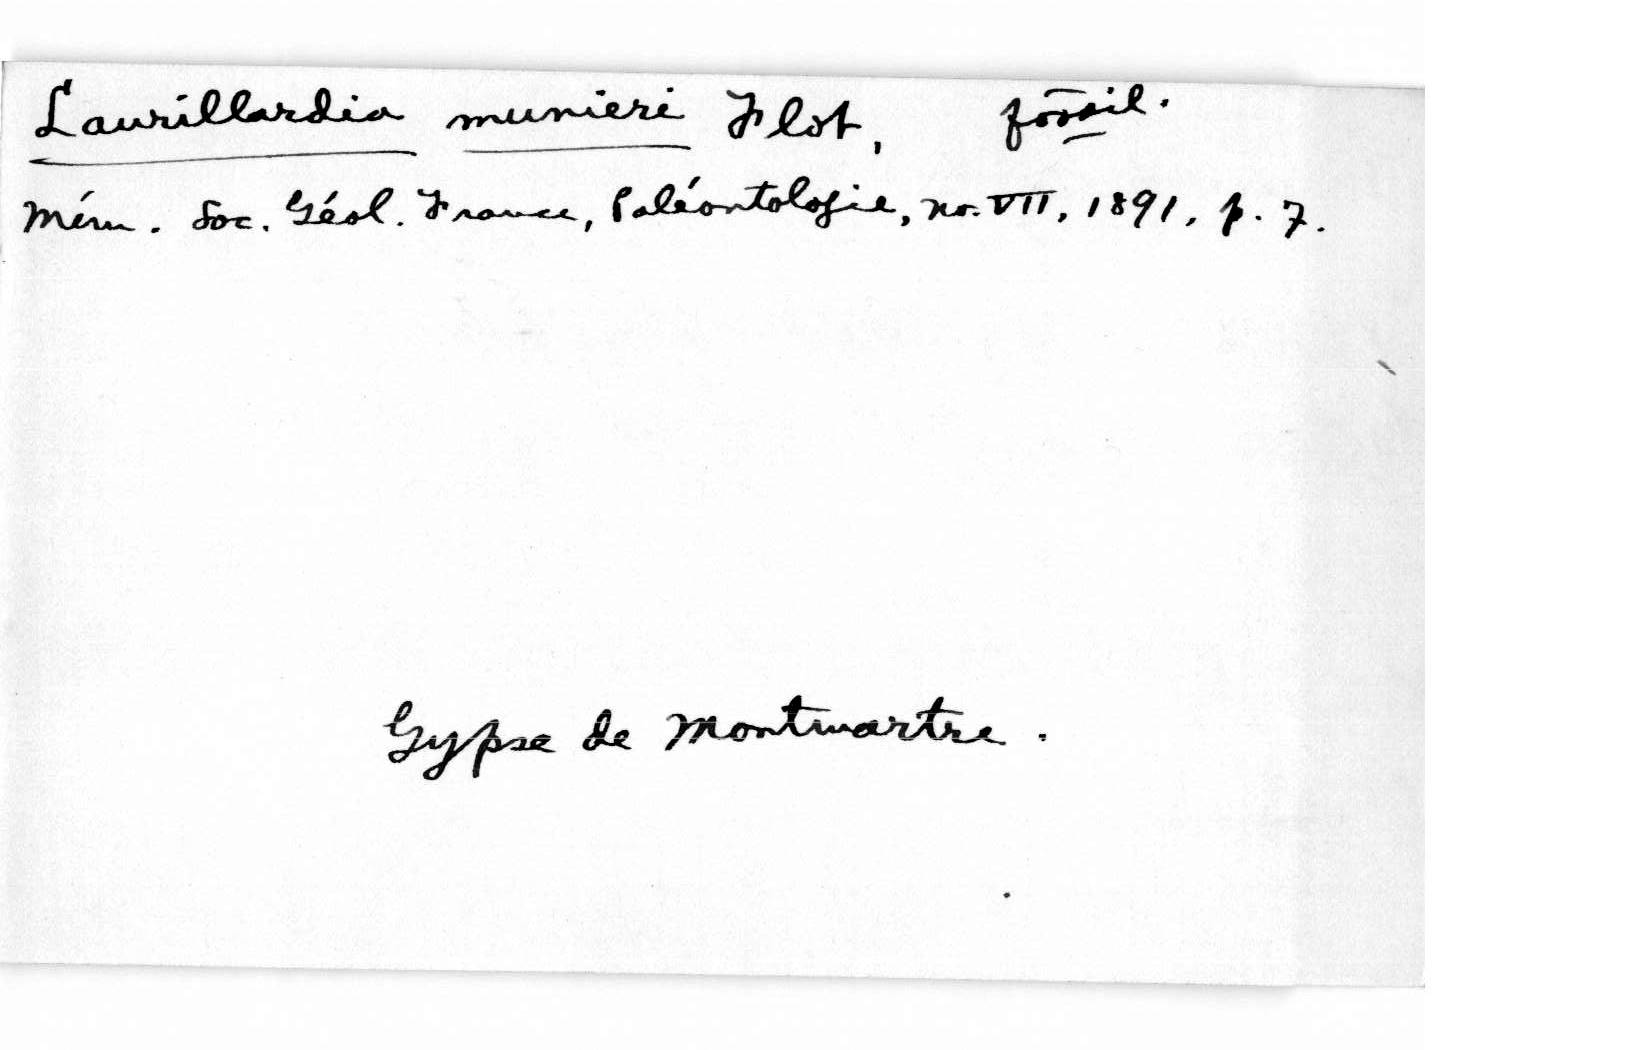 Laurillardia munieri Flot, fossil.
Mém. Soc. Géol. France, Paléontologie, no. VII, 1891, p. 7.
Gypse de Montmartre.